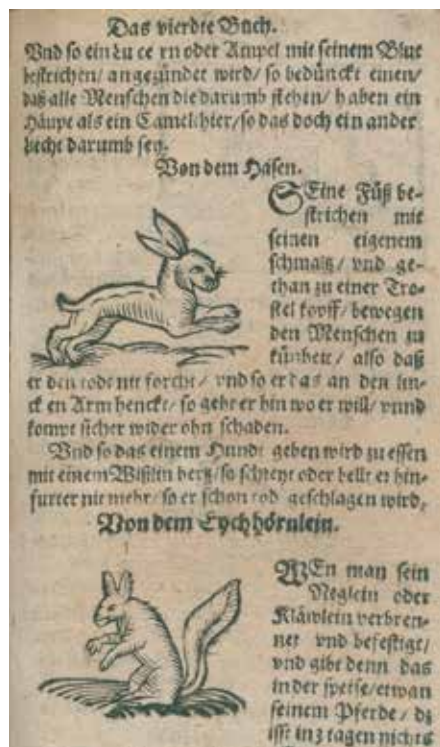 Das vierdte Buch.
Vnd so ein Lucern oder Ampel mit seinem Blut
bestrichen/ angezündet wird/ so bedünckt einen/
daß alle Menschen die darumb stehen/ haben ein
Häupt als ein Camelthier/ so das doch ein ander
Liecht darumb sey.
Von dem Hasen.
SEine Füß be-
strichen mit
seinen eigenem
schmaltz/ vnd ge-
than zu einer Tro-
stel kopff/ bewegen
den Menschen zu
künheit/ also daß
er den todt nit förcht/ vnd so er das an den lin-
cken Arm henckt/ so geht er hin wo er will/ vnnd
kompt sicher wider ohn schaden.
Vnd so das einem Hundt geben wird zu essen
mit einem Wißlin hertz/ so schreyt oder bellt er hin-
furter nit mehr/ so er schon tod geschlagen wird.
Von dem Eychhörnlein.
WEn man sein
Neglein oder
Kläwlein verbren-
net vnd befestiget/
vnd gibt denn das
in der speise/ etwan
seinem Pferde/ dz
isst in 3 tagen nichts